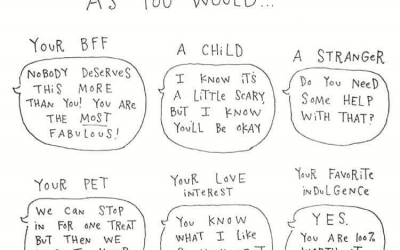 AS YOU WOULD...
YOUR BFF
NOBODY DESERVES
THIS MORE
THAN YOU! YOU ARE
THE MOST
FABULOUS!
A CHILD
I KNOW IT'S
A LITTLE SCARY,
BUT I KNOW
YOU'LL BE OKAY
A STRANGER
DO YOU NEED
SOME HELP
WITH THAT?
YOUR PET
WE CAN STOP
IN FOR ONE TREAT
BUT THEN WE
YOUR LOVE
INTEREST
YOU KNOW
WHAT I LIKE
YOUR FAVORITE
INDULGENCE
YES.
YOU ARE 100%
WORTH IT